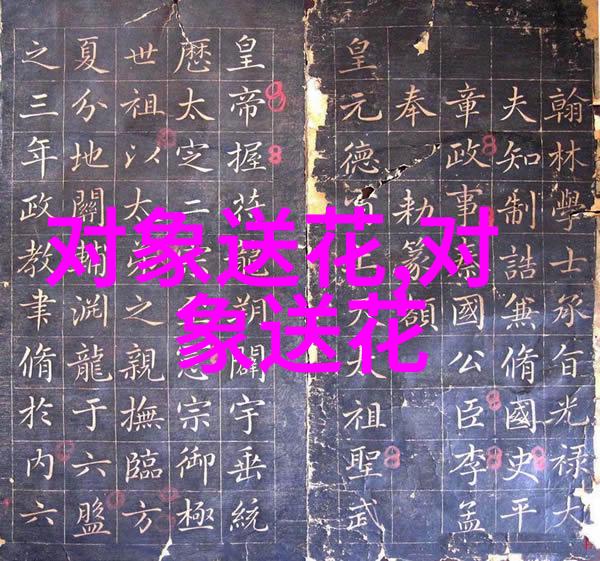 对象送花,对
象送花
翰林學士承旨光祿大
夫知制誥兼脩國史平
章政事國公臣李孟
奉勅篆額
皇元德太祖聖武
皇帝握符朔闢宇垂統
歷太定二憲宗御極
世祖以太之親撫臨方
夏分地關輔淵龍于六盤
之三年政教聿脩於内六